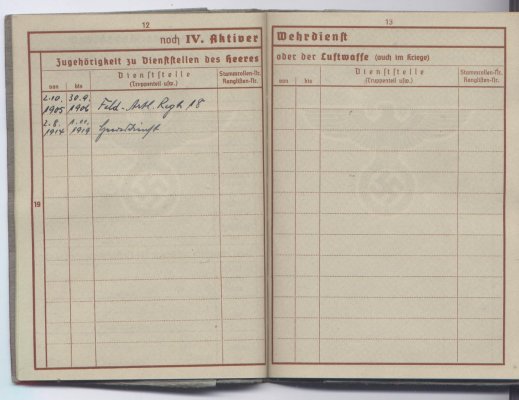 12
noch IV. Aktiver
Zugehörigkeit zu Dienststellen des Heeres
von bis Dienststelle (Truppenteil usw.) Stammrollen-Nr. Ranglisten-Nr.
2.10. 30.9.
1905 1906 Feld-Artl. Regt 18
2.8.
1914 1919 Heeresdienst
19
13
Wehrdienst
oder der Luftwaffe (auch im Kriege)
von bis Dienststelle (Truppenteil usw.) Stammrollen-Nr. Ranglisten-Nr.